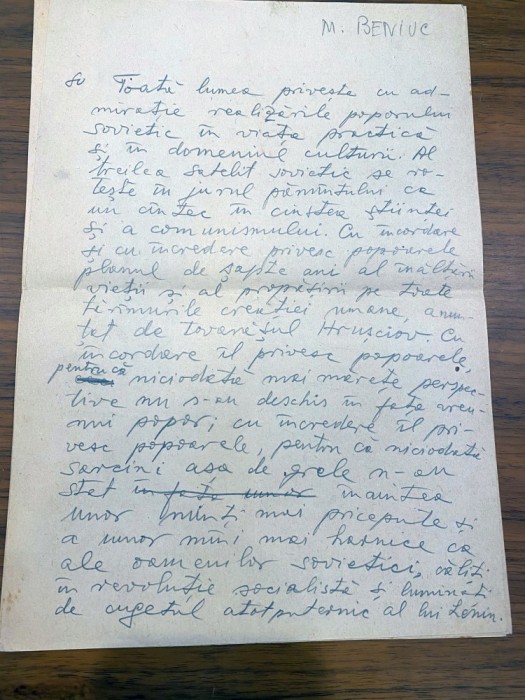 M. BENIUC
Toată lumea privește cu ad-
mirație realizările poporului
sovietic în viața practică
și în domeniul culturii. Al
treilea satelit sovietic se ro-
tește în jurul pămîntului ca
un cîntec în cinstea științei
și a comunismului. Cu încordare
și cu încredere privesc popoarele
planul de șapte ani al înălțării
vieții și al propășirii pe toate
tărîmurile creației umane, anun-
țat de tovarășul Hrușciov. Cu
încordare îl privesc popoarele,
pentru că niciodată mai mărețe perspec-
tive nu s-au deschis în fața vreu-
nui popor; cu încredere îl pri-
vesc popoarele, pentru că niciodată
sarcini așa de grele n-au
stat în fața unor înaintea
unor minți mai pricepute și
a unor mîini mai harnice ca
ale oamenilor sovietici, căliți
în revoluție socialistă și luminați
de cugetul atotputernic al lui Lenin.